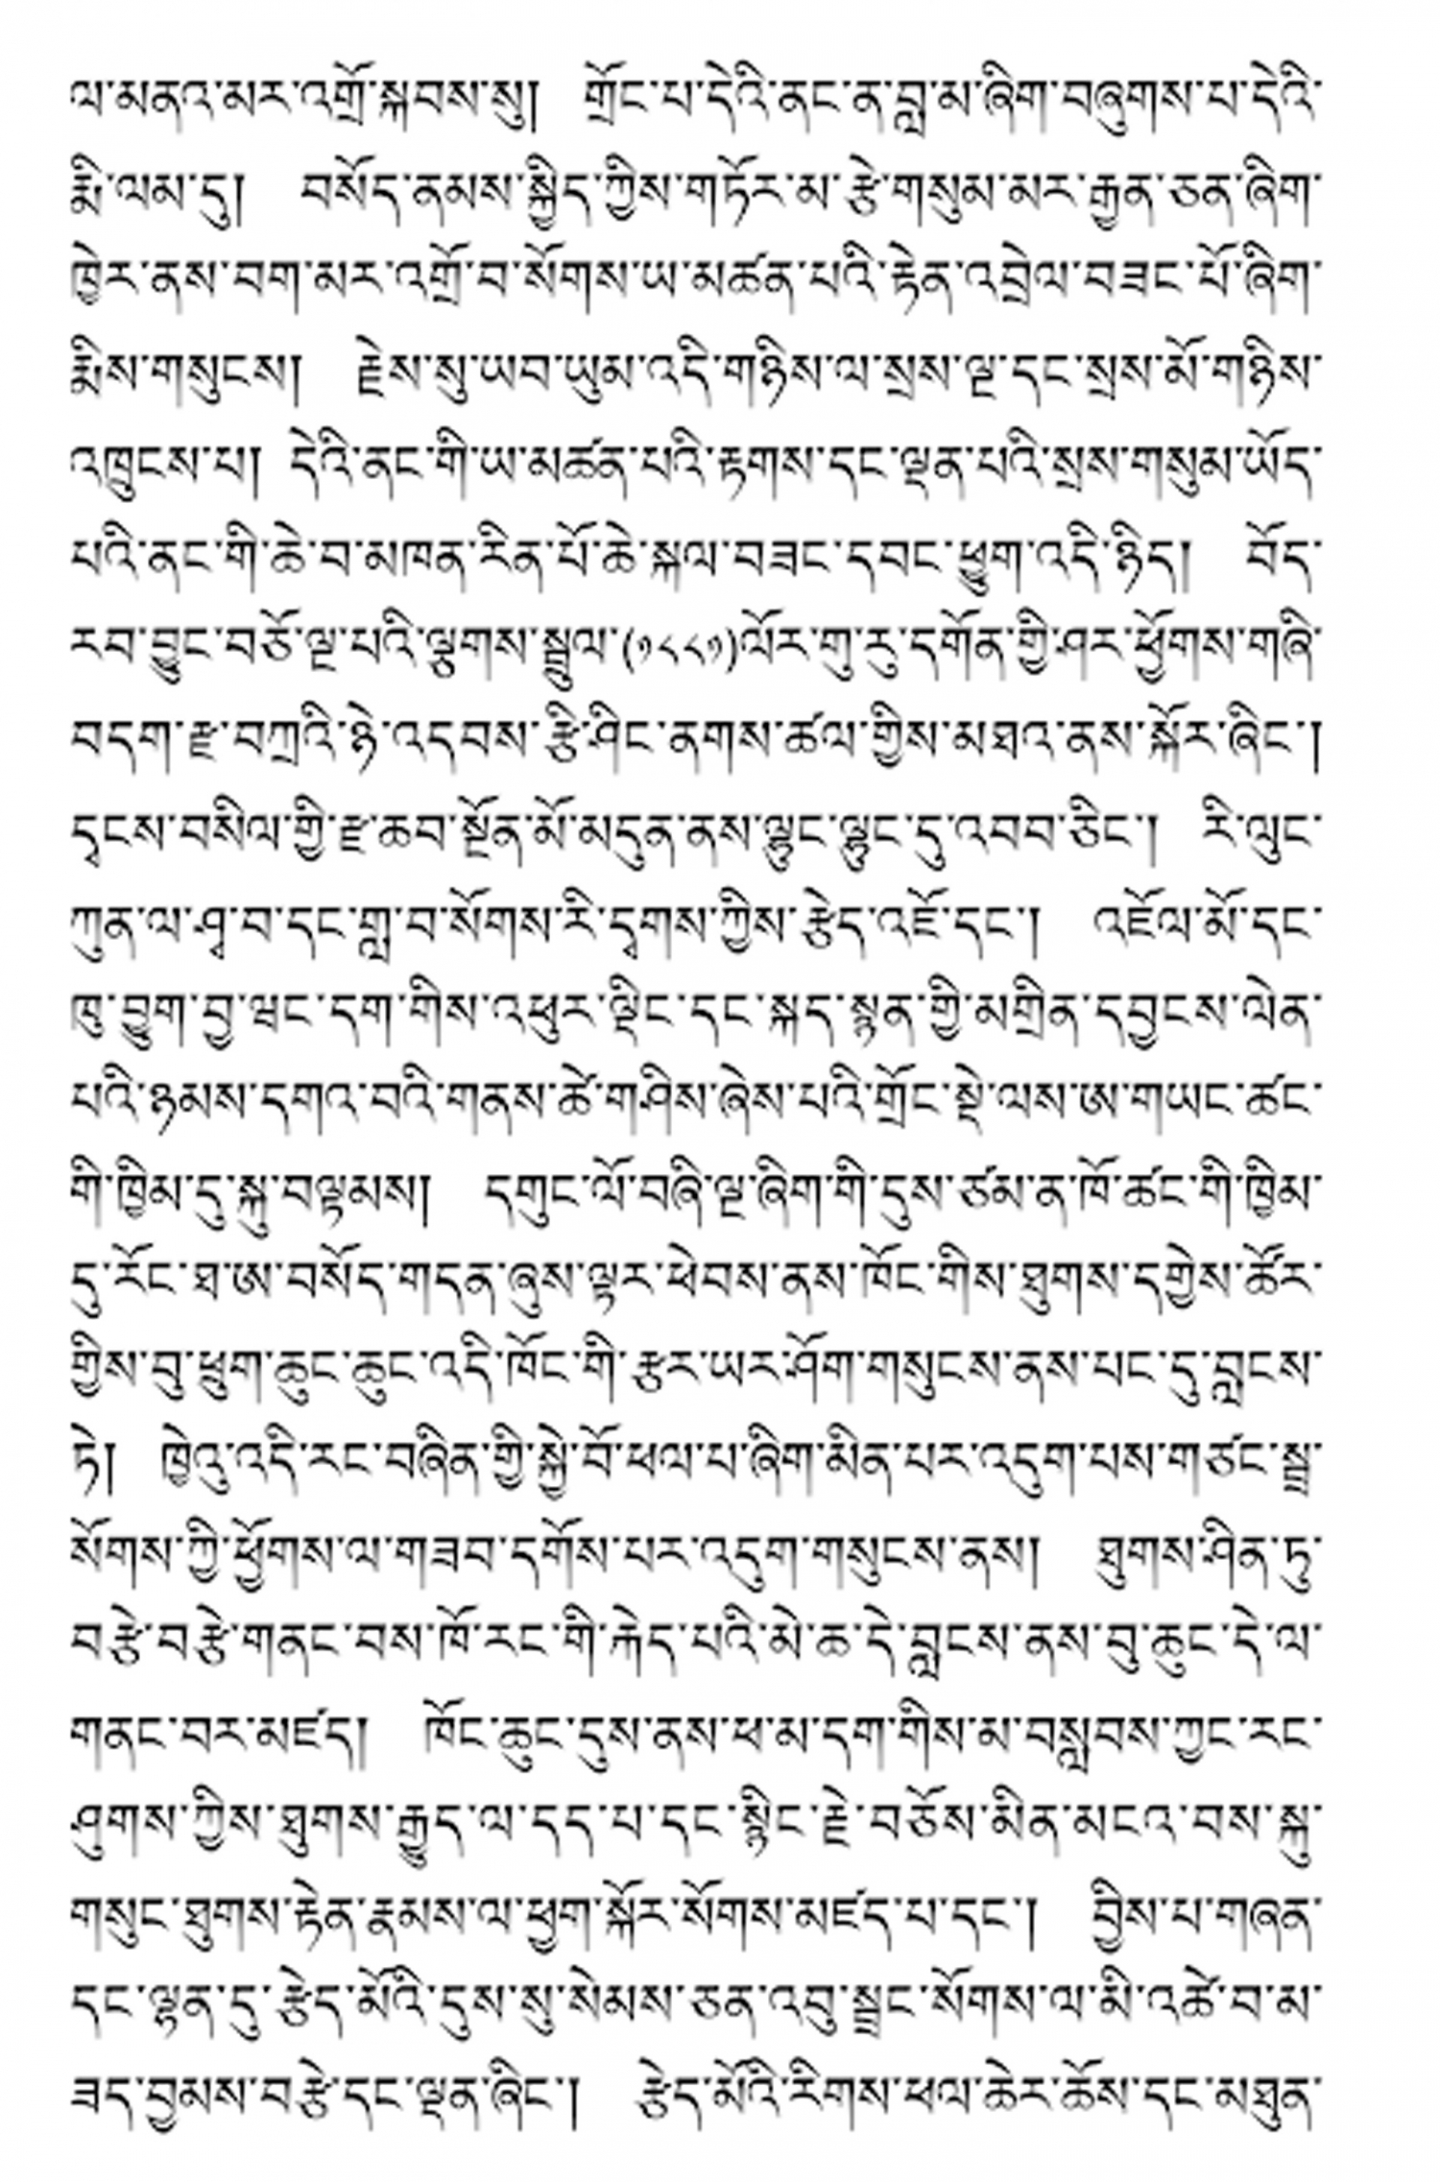 ལ་མནའ་མར་འགྲོ་སྐབས་སུ། གྲོང་པ་དེའི་ནང་ན་བླ་མ་ཞིག་བཞུགས་པ་དེའི་
རྨི་ལམ་དུ། བསོད་ནམས་སྐྱིད་ཀྱིས་གཏོར་མ་རྩེ་གསུམ་མར་རྒྱན་ཅན་ཞིག་
ཁྱེར་ནས་བག་མར་འགྲོ་བ་སོགས་ཡ་མཚན་པའི་རྟེན་འབྲེལ་བཟང་པོ་ཞིག་
རྨིས་གསུངས། རྗེས་སུ་ཡབ་ཡུམ་འདི་གཉིས་ལ་སྲས་ལྔ་དང་སྲས་མོ་གཉིས་
འཁྲུངས་པ། དེའི་ནང་གི་ཡ་མཚན་པའི་རྟགས་དང་ལྡན་པའི་སྲས་གསུམ་ཡོད་
པའི་ནང་གི་ཆེ་བ་མཁན་རིན་པོ་ཆེ་སྐལ་བཟང་དབང་ཕྱུག་འདི་ཉིད། བོད་
རབ་བྱུང་བཅོ་ལྔ་པའི་ལྕགས་སྦྲུལ་(༡༨༨༡)ལོར་གུ་རུ་དགོན་གྱི་ཤར་ཕྱོགས་གཞི་
བདག་རྫ་བཀྲའི་ཉེ་འདབས་རྩི་ཤིང་ནགས་ཚལ་གྱིས་མཐའ་ནས་སྐོར་ཞིང་།
དྭངས་བསིལ་གྱི་རྫ་ཆབ་སྔོན་མོ་མདུན་ནས་ལྷུང་ལྷུང་དུ་འབབ་ཅིང་། རི་ལུང་
ཀུན་ལ་ཤྭ་བ་དང་གླ་བ་སོགས་རི་དྭགས་ཀྱིས་རྩེད་འཇོ་དང་། འཇོལ་མོ་དང་
ཁུ་བྱུག་བྱ་ཝང་དག་གིས་འཕུར་ལྡིང་དང་སྐད་སྙན་གྱི་མགྲིན་དབྱངས་ལེན་
པའི་ཉམས་དགའ་བའི་གནས་ཚེ་གཤིས་ཞེས་པའི་གྲོང་སྡེ་ལས་ཨ་གཡང་ཚང་
གི་ཁྱིམ་དུ་སྐུ་བལྟམས། དགུང་ལོ་བཞི་ལྔ་ཞིག་གི་དུས་ཙམ་ན་ཁོ་ཚང་གི་ཁྱིམ་
དུ་རོང་ཐ་ཨ་བསོད་གདན་ཞུས་ལྟར་ཕེབས་ནས་ཁོང་གིས་ཐུགས་དགྱེས་ཚོར་
གྱིས་བུ་ཕྲུག་ཆུང་ཆུང་འདི་ཁོང་གི་རྩར་ཡར་ཤོག་གསུངས་ནས་པང་དུ་བླངས་
ཏེ། ཁྱེའུ་འདི་རང་བཞིན་གྱི་སྐྱེ་བོ་ཕལ་པ་ཞིག་མིན་པར་འདུག་པས་གཙང་སྦྲ་
སོགས་ཀྱི་ཕྱོགས་ལ་གཟབ་དགོས་པར་འདུག་གསུངས་ནས། ཐུགས་ཤིན་ཏུ་
བརྩེ་བརྩེ་གནང་བས་ཁོ་རང་གི་རྐེད་པའི་མེ་ཆ་དེ་བླངས་ནས་བུ་ཆུང་དེ་ལ་
གནང་བར་མཛད། ཁོང་ཆུང་དུས་ནས་ཕ་མ་དག་གིས་མ་བསླབས་ཀྱང་རང་
ཤུགས་ཀྱིས་ཐུགས་རྒྱུད་ལ་དད་པ་དང་སྙིང་རྗེ་བཅོས་མིན་མངའ་བས་སྐུ་
གསུང་ཐུགས་རྟེན་རྣམས་ལ་ཕྱག་སྐོར་སོགས་མཛད་པ་དང་། བྱིས་པ་གཞན་
དང་ལྷན་དུ་རྩེད་མོའི་དུས་སུ་སེམས་ཅན་འབུ་སྦྲང་སོགས་ལ་མི་འཚེ་བ་མ་
ཟད་བྱམས་བརྩེ་དང་ལྡན་ཞིང་། རྩེད་མོའི་རིགས་ཕལ་ཆེར་ཆོས་དང་མཐུན་